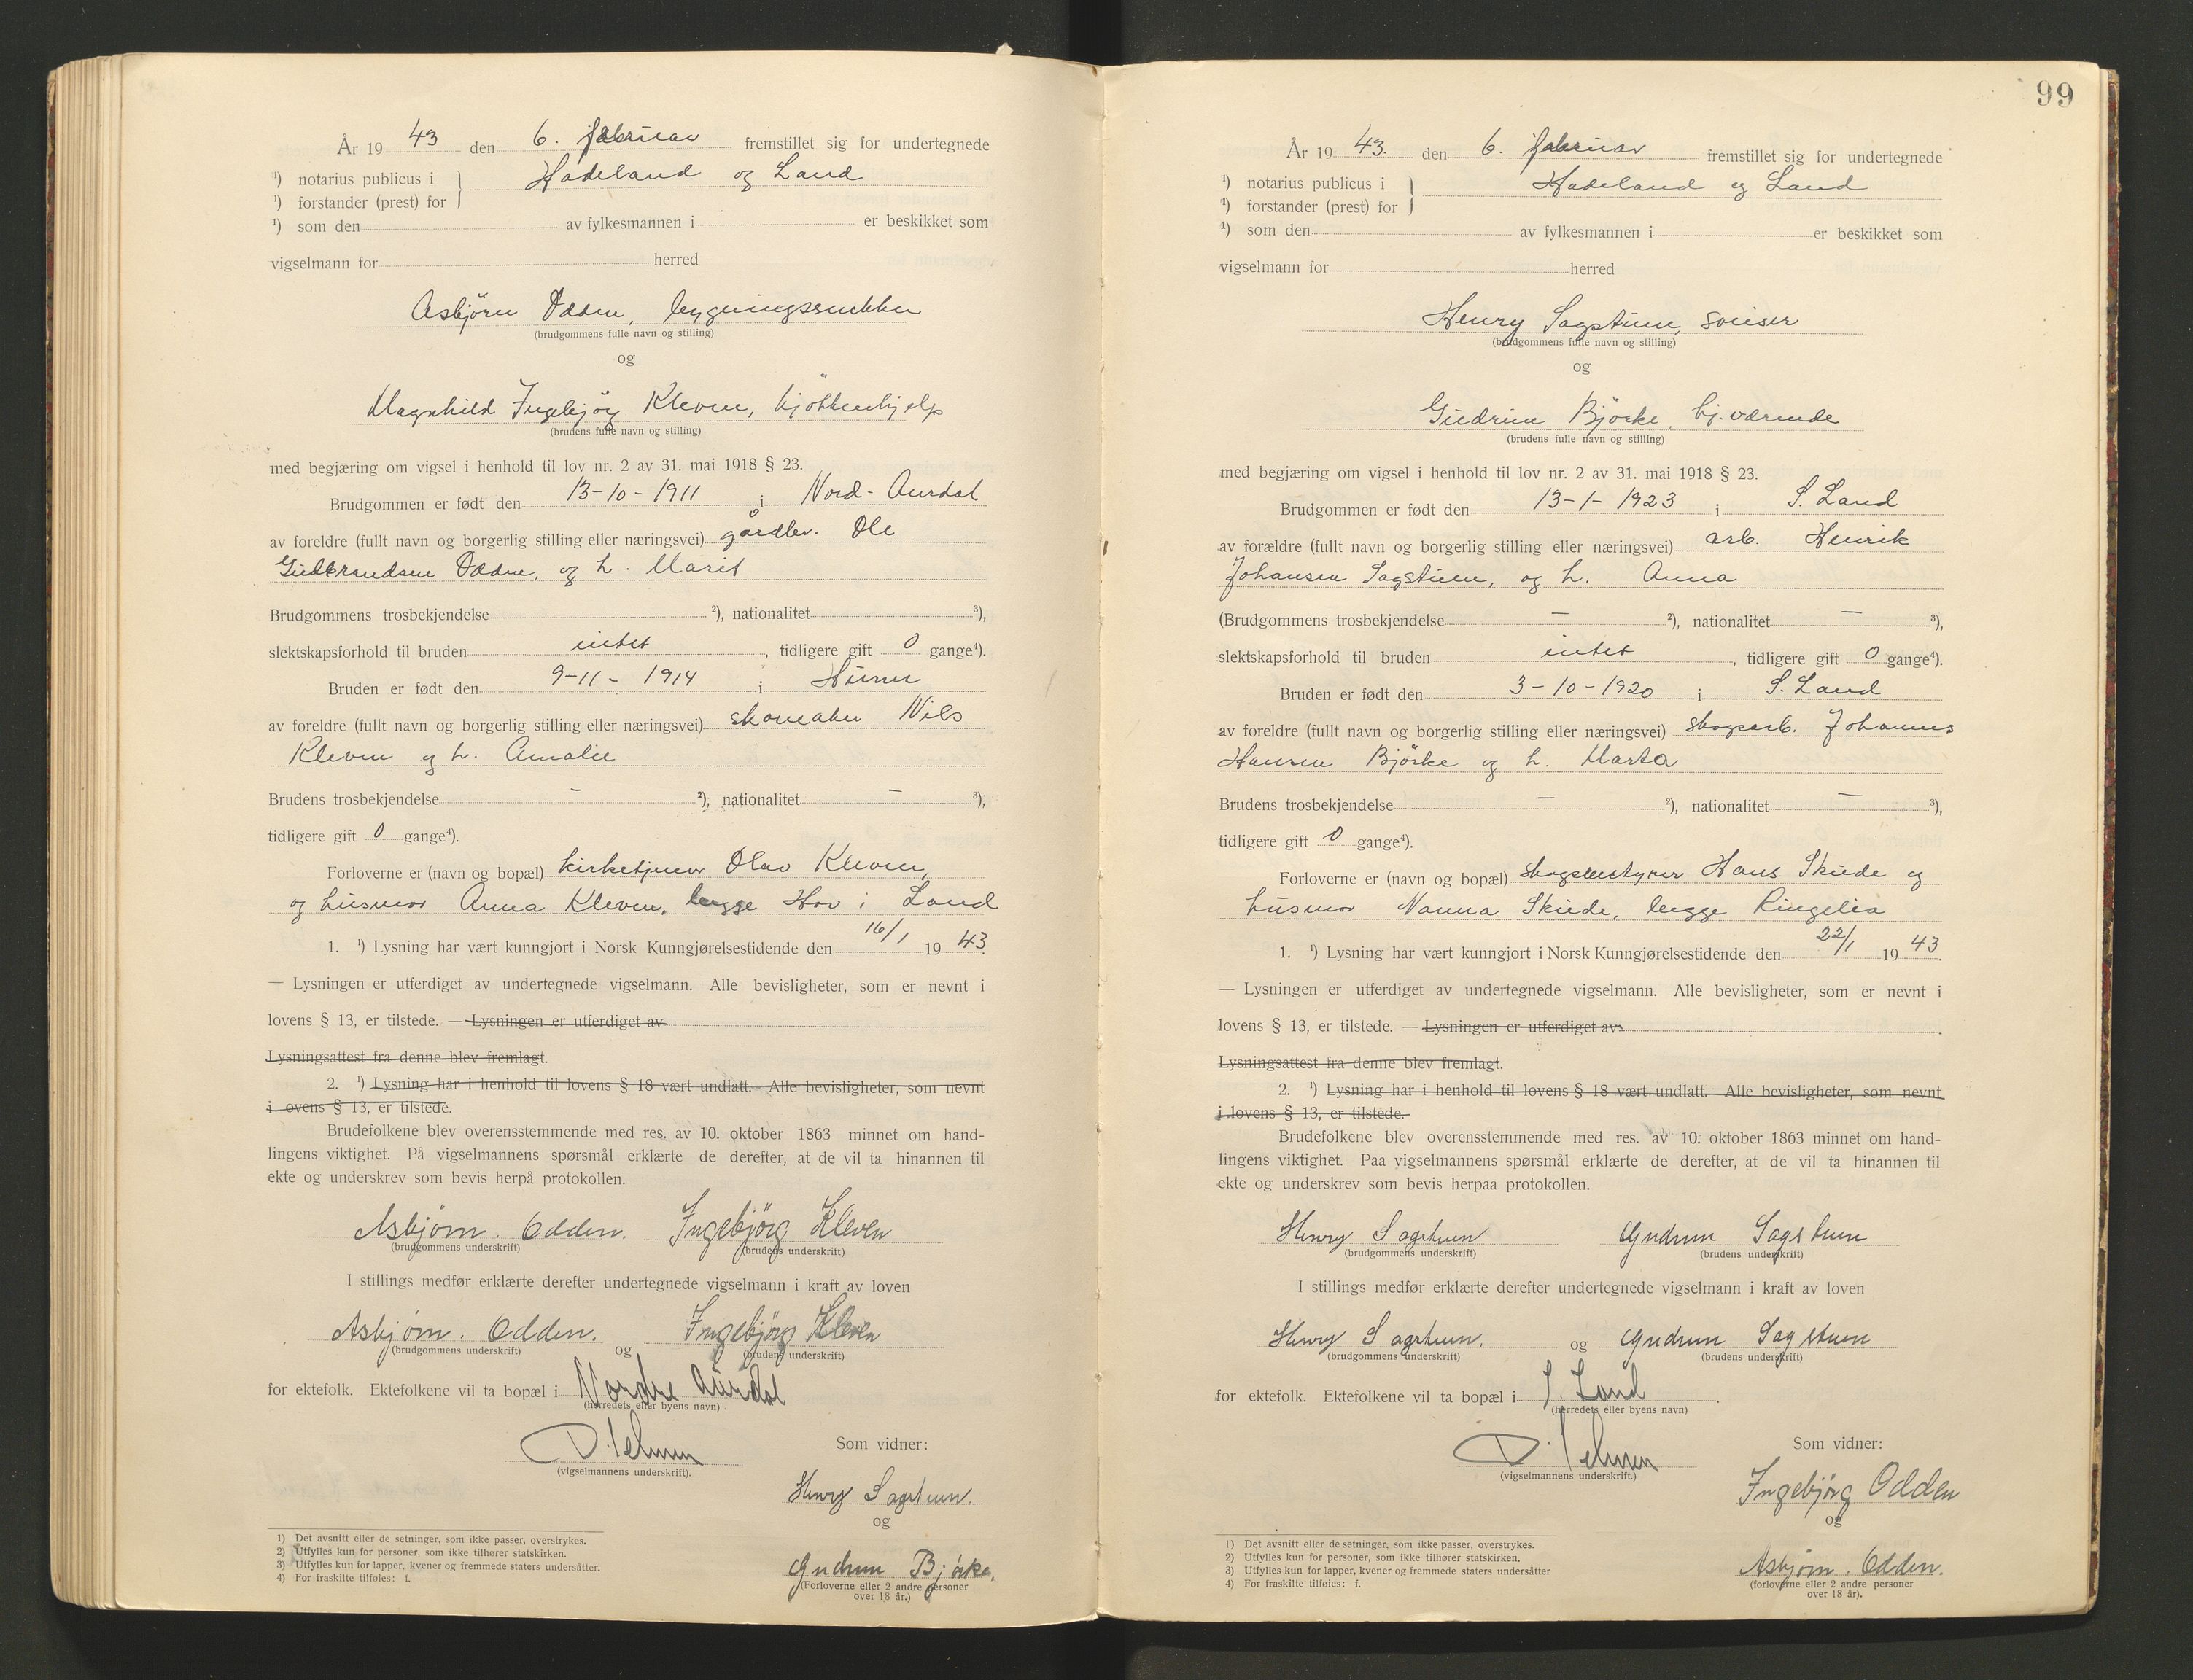 År 19 43 den 6. februar fremstillet sig for undertegnede
¹) notarius publicus i } Hadeland og Land
¹) forstander (prest) for
¹) som den av fylkesmannen i er beskikket som
vigselmann for herred
Asbjörn Odden, bygningssnekker
(brudgommens fulle navn og stilling)
og
Magnhild Ingebjørg Kleven, kjökkenhjelp
(brudens fulle navn og stilling)
med begjæring om vigsel i henhold til lov nr. 2 av 31. mai 1918 § 23.
Brudgommen er født den 13-10-1911 i Nord-Aurdal
av foreldre (fullt navn og borgerlig stilling eller næringsvei) gårdbr. Ole
Gudbrandsen Odden, og h. Marit
Brudgommens trosbekjendelse ²), nationalitet ³),
slektskapsforhold til bruden intet, tidligere gift 0 gange⁴).
Bruden er født den 9-11-1914 i Hurum
av foreldre (fullt navn og borgerlig stilling eller næringsvei) skomaker Nils
Kleven og h. Amalie
Brudens trosbekjendelse – ²), nationalitet – ³),
tidligere gift 0 gange⁴).
Forloverne er (navn og bopæl) kirketjener Olav Kleven,
og husmor Anna Kleven, begge Hov i Land
1. ¹) Lysning har vært kunngjort i Norsk Kunngjørelsestidende den 16/1 19 43.
— Lysningen er utferdiget av undertegnede vigselmann. Alle bevisligheter, som er nevnt i
lovens § 13, er tilstede. — Lysningen er utferdiget av
Lysningsattest fra denne blev fremlagt.
2. ¹) Lysning har i henhold til lovens § 18 vært undlatt. - Alle bevisligheter, som nevnt
i ovens § 13, er tilstede.
Brudefolkene blev overensstemmende med res. av 10. oktober 1863 minnet om hand-
lingens viktighet. På vigselmannens spørsmål erklærte de derefter, at de vil ta hinannen til
ekte og underskrev som bevis herpå protokollen.
Asbjørn. Odden. Ingebjörg Kleven
(brudgommens underskrift) (brudens underskrift)
I stillings medfør erklærte derefter undertegnede vigselmann i kraft av loven
Asbjørn. Odden. og Ingebjörg Kleven
(brudgommens underskrift) (brudens underskrift)
for ektefolk. Ektefolkene vil ta bopæl i Nordre Aurdal
(herredets eller byens navn)
(vigselmannens underskrift).
Som vidner:
Henry Sagstuen.
og
Gudrun Bjørke.
(Forloverne eller 2 andre personer
over 18 år.)
1) Det avsnitt eller de setninger, som ikke passer, overstrykes.
2) Utfylles kun for personer, som ikke tilhører statskirken.
3) Utfylles kun for lapper, kvener og fremmede staters undersåtter.
4) For fraskilte tilføies: f.
99
År 19 43. den 6. februar fremstillet sig for undertegnede
¹) notarius publicus i } Hadeland og Land
¹) forstander (prest) for
¹) som den av fylkesmannen i er beskikket som
vigselmann for herred
Henry Sagstuen, sveiser
(brudgommens fulle navn og stilling)
og
Gudrun Björke, hj.værende
(brudens fulle navn og stilling)
med begjæring om vigsel i henhold til lov nr. 2 av 31. mai 1918 § 23.
Brudgommen er født den 13-1-1923 i S. Land
av forældre (fullt navn og borgerlig stilling eller næringsvei) arb. Henrik
Johansen Sagstuen, og h. Anna
(Brudgommens trosbekjendelse – ²), nationalitet – ³),
slektskapsforhold til bruden intet, tidligere gift 0 gange⁴).
Bruden er født den 3-10-1920 i S. Land
av foreldre (fullt navn og borgerlig stilling eller næringsvei) skogsarb. Johannes
Hansen Bjørke og h. Marta
Brudens trosbekjendelse – ²), nationalitet – ³),
tidligere gift 0 gange⁴).
Forloverne er (navn og bopæl) skogbestyrer Hans Skiede og
husmor Nanna Skiede, begge Ringelia
1. ¹) Lysning har vært kunngjort i Norsk Kunngjørelsestidende den 22/1 19 43.
— Lysningen er utferdiget av undertegnede vigselmann. Alle bevisligheter, som er nevnt i
lovens § 13, er tilstede. — Lysningen er utferdiget av
Lysningsattest fra denne blev fremlagt.
2. ¹) Lysning har i henhold til lovens § 18 vært undlatt. Alle bevisligheter, som nevnt
i lovens § 13, er tilstede.
Brudefolkene blev overensstemmende med res. av 10. oktober 1863 minnet om hand-
lingens viktighet. Paa vigselmannens spørsmål erklærte de derefter, at de vil ta hinannen til
ekte og underskrev som bevis herpaa protokollen.
Henry Sagstuen Gudrun Sagstuen
(brudgommens underskrift) (brudens underskrift)
I stillings medfør erklærte derefter undertegnede vigselmann i kraft av loven
Henry Sagstuen. og Gudrun Sagstuen
(brudgommens underskrift) (brudens underskrift)
for ektefolk. Ektefolkene vil ta bopæl i S. Land.
(herredets eller byens navn)
(vigselmannens underskrift.)
Som vidner:
Ingebjörg Odden
og
Asbjørn. Odden.
(forloverne eller 2 andre personer
over 18 år).
1) Det avsnitt eller de setninger, som ikke passer, overstrykes.
2) Utfylles kun for personer, som ikke tilhører statskirken.
3) Utfylles kun for lapper, kvener og fremmede staters undersåtter
4) For fraskilte tilføies: f.